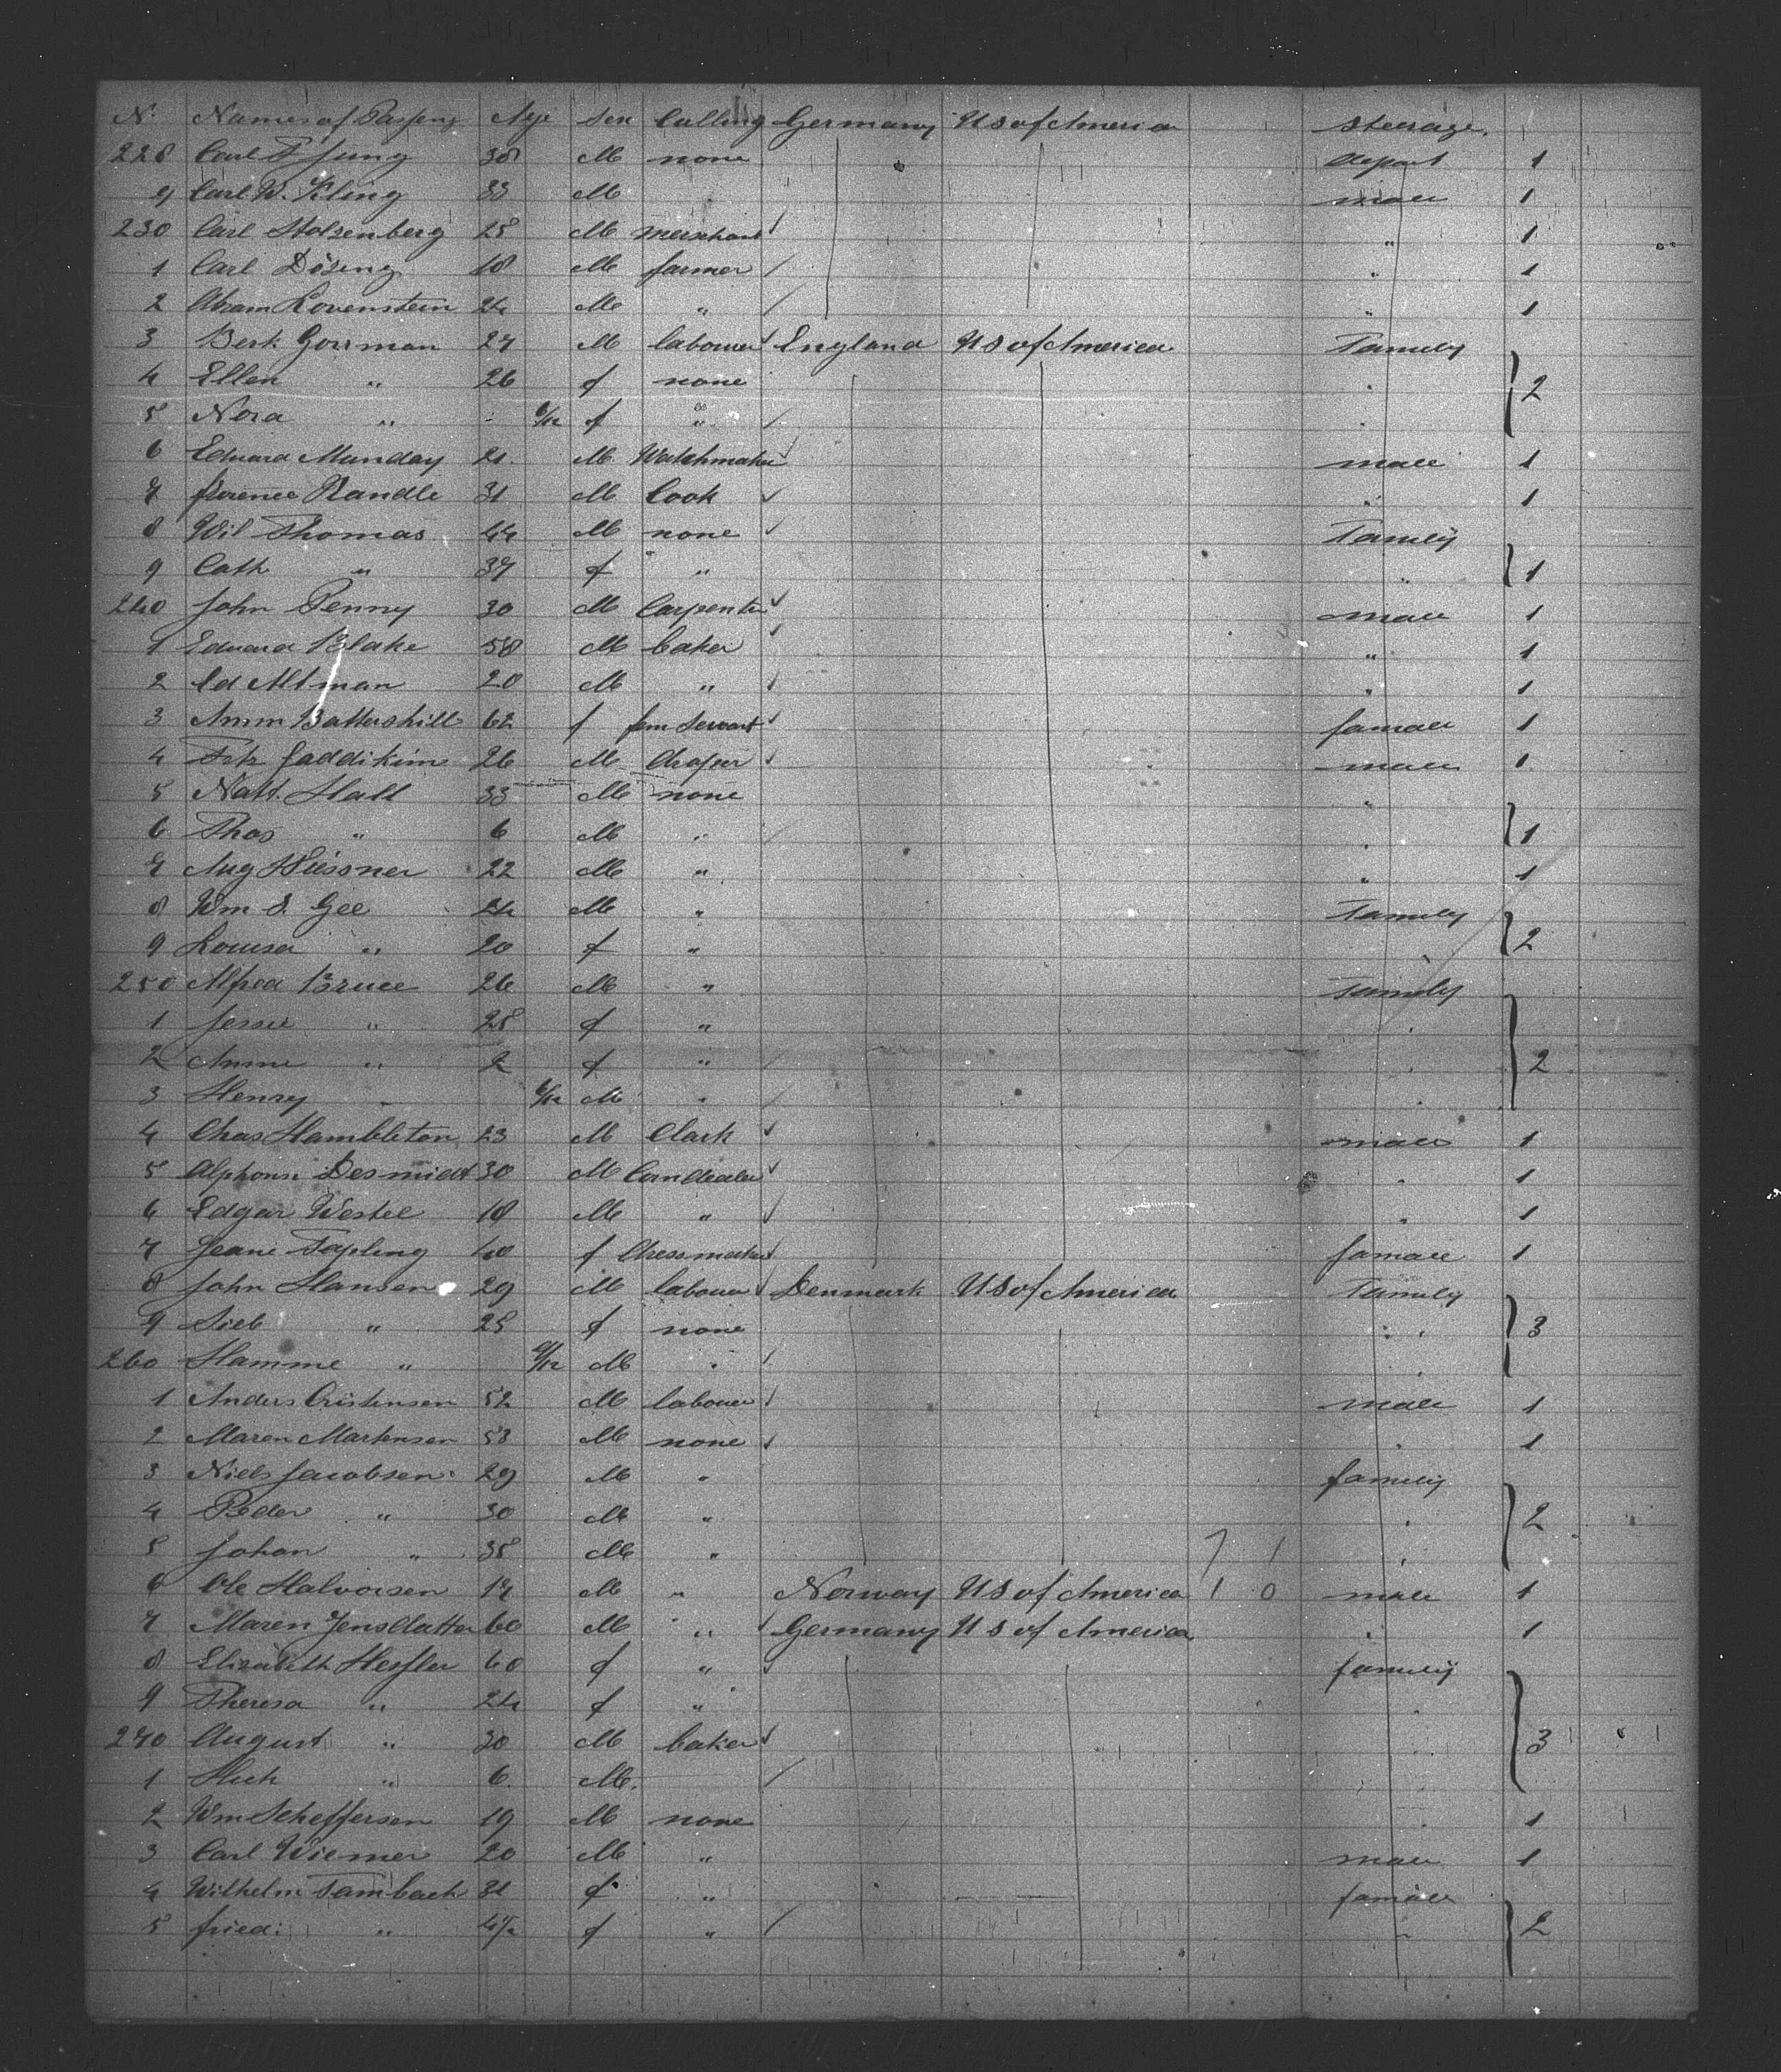 No Names of Passeng Age Sex Calling Germany US of America Steerage
228 Carl F Jung 38 M none depart 1
9 Carl W. Kling 33 M male 1
230 Carl Stolzenberg 25 M merschant " 1
1 Carl Dösing 18 M farmer " 1
2 Abram Lovenstein 24 M " " 1
3 Berk Gorrman 27 M labouer England US of America Family
4 Ellen " 26 f none " 2
5 Nora " 6/12 f " "
6 Eduard Munday 21 M Watchmaker male 1
7 florence Randle 31 M Cook " 1
8 Wil Thomas 44 M none Family
9 Cath " 37 f " " 1
240 John Penny 30 M Carpenter male 1
1 Eduard Blake 58 M baker " 1
2 Ed Altman 20 M " " 1
3 Annn Battershill 62 f fem Servant famale 1
4 Fitz Jaddikim 26 M draper male 1
5 Natt. Hall 33 M none "
6 Thos " 6 M " " 1
7 Aug Hüssner 22 M " " 1
8 Wm S. Gee 24 M " Family
9 Louisa " 20 f " 2
250 Alfred Bruce 26 M " Family
1 Jessie " 25 f " "
2 Annie " 2 f " " 2
3 Henry " 6/12 M " "
4 Chas Hambleton 23 M Clark male 1
5 Alphons Desmidt 30 M Corndealer " 1
6 Edgar Westel 18 M " " 1
7 Jeane Tapling 40 f dressmaker famale 1
8 John Hansen 29 M labouer Denmark US of America Family
9 Sieb " 25 f none " 3
260 Hamme " /12 M " "
1 Anders Cristensen 52 M labouer male 1
2 Maren Martensen 53 M none " 1
3 Niels Jacobsen 29 M " family
4 Peder " 30 M " " 2
5 Johan " 35 M " "
6 Ole Halvorsen 17 M " Norway US of America 1 0 male 1
7 Maren Jensdatter 66 M " Germany US of America " 1
8 Elisabeth Hessler 60 f " family
9 Theresa " 24 f " "
270 August " 30 M baker " 3
1 Hich " 6 M.
2 Wm Scheffersen 19 M none 1
3 Carl Wiemer 20 M " male 1
4 Wilhelm Tambach 31 f " famale
5 fried: " f " " 2